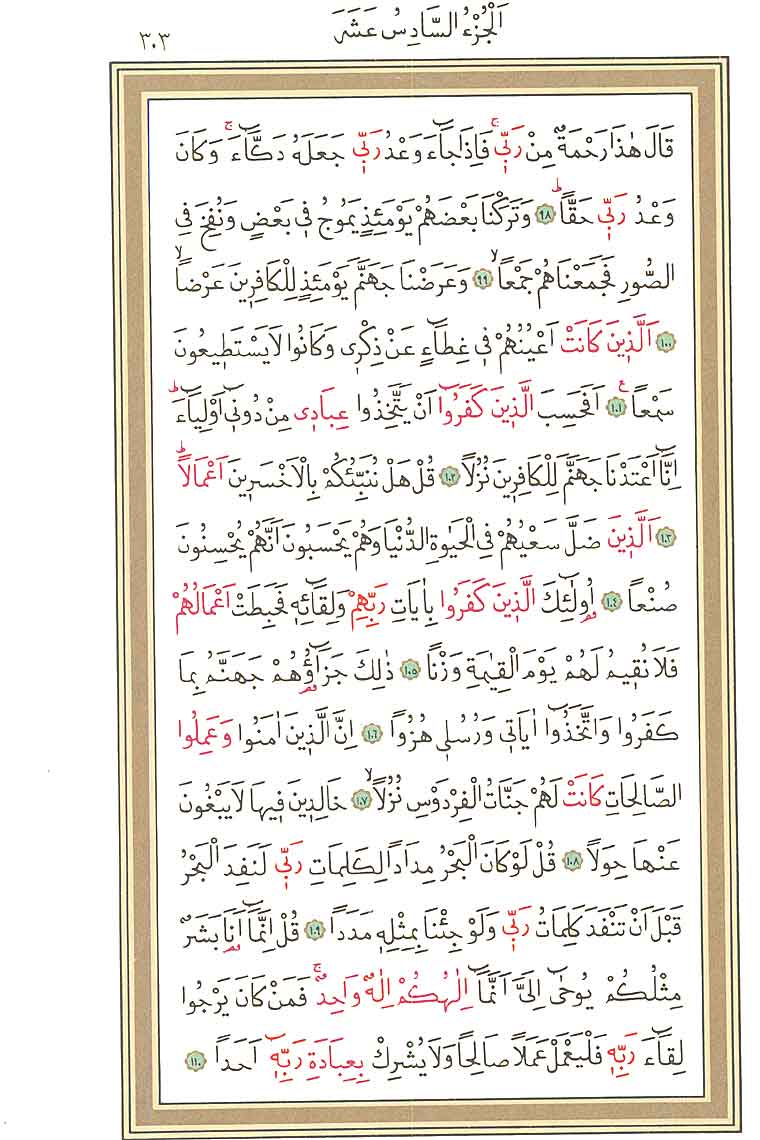 اَلْجُزْءُ السَّادِسُ عَشَرَ
٣٠٣
قَالَ هٰذَا رَحْمَةٌ مِنْ رَبّٖيۚ فَاِذَا جَٓاءَ وَعْدُ رَبّٖي جَعَلَهُ دَكَّٓاءَۚ وَكَانَ
وَعْدُ رَبّٖي حَقًّاؕ ﴿٩٨﴾ وَتَرَكْنَا بَعْضَهُمْ يَوْمَئِذٍ يَمُوجُ فٖي بَعْضٍ وَنُفِخَ فِي
الصُّورِ فَجَمَعْنَاهُمْ جَمْعًاۙ ﴿٩٩﴾ وَعَرَضْنَا جَهَنَّمَ يَوْمَئِذٍ لِلْكَافِرٖينَ عَرْضًاۙ
﴿١٠٠﴾ اَلَّذٖينَ كَانَتْ اَعْيُنُهُمْ فٖي غِطَٓاءٍ عَنْ ذِكْرٖي وَكَانُوا لَا يَسْتَطٖيعُونَ
سَمْعًاࣖ ﴿١٠١﴾ اَفَحَسِبَ الَّذٖينَ كَفَرُٓوا اَنْ يَتَّخِذُوا عِبَادٖي مِنْ دُونٖٓي اَوْلِيَٓاءَؕ
اِنَّٓا اَعْتَدْنَا جَهَنَّمَ لِلْكَافِرٖينَ نُزُلًا ﴿١٠٢﴾ قُلْ هَلْ نُنَبِّئُكُمْ بِالْاَخْسَرٖينَ اَعْمَالًاؕ
﴿١٠٣﴾ اَلَّذٖينَ ضَلَّ سَعْيُهُمْ فِي الْحَيٰوةِ الدُّنْيَا وَهُمْ يَحْسَبُونَ اَنَّهُمْ يُحْسِنُونَ
صُنْعًا ﴿١٠٤﴾ اُو۬لٰٓئِكَ الَّذٖينَ كَفَرُوا بِاٰيَاتِ رَبِّهِمْ وَلِقَٓائِهٖ فَحَبِطَتْ اَعْمَالُهُمْ
فَلَا نُقٖيمُ لَهُمْ يَوْمَ الْقِيٰمَةِ وَزْنًا ﴿١٠٥﴾ ذٰلِكَ جَزَٓاؤُ۬هُمْ جَهَنَّمُ بِمَا
كَفَرُوا وَاتَّخَذُٓوا اٰيَاتٖي وَرُسُلٖي هُزُوًا ﴿١٠٦﴾ اِنَّ الَّذٖينَ اٰمَنُوا وَعَمِلُوا
الصَّالِحَاتِ كَانَتْ لَهُمْ جَنَّاتُ الْفِرْدَوْسِ نُزُلًاۙ ﴿١٠٧﴾ خَالِدٖينَ فٖيهَا لَا يَبْغُونَ
عَنْهَا حِوَلًا ﴿١٠٨﴾ قُلْ لَوْ كَانَ الْبَحْرُ مِدَادًا لِكَلِمَاتِ رَبّٖي لَنَفِدَ الْبَحْرُ
قَبْلَ اَنْ تَنْفَدَ كَلِمَاتُ رَبّٖي وَلَوْ جِئْنَا بِمِثْلِهٖ مَدَدًا ﴿١٠٩﴾ قُلْ اِنَّمَٓا اَنَا۬ بَشَرٌ
مِثْلُكُمْ يُوحٰٓى اِلَيَّ اَنَّمَٓا اِلٰهُكُمْ اِلٰهٌ وَاحِدٌۚ فَمَنْ كَانَ يَرْجُوا
لِقَٓاءَ رَبِّهٖ فَلْيَعْمَلْ عَمَلًا صَالِحًا وَلَا يُشْرِكْ بِعِبَادَةِ رَبِّهٖٓ اَحَدًا ﴿١١٠﴾